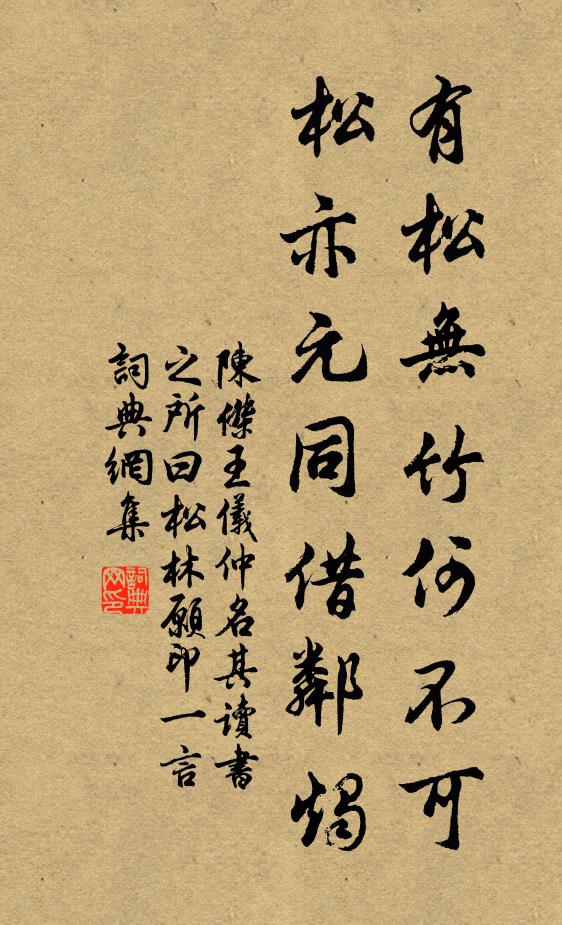 有松無竹何不可
松亦元同借鄰燭
陳傑王儀仲名其讀書
之所曰松林願印一言
詞典網集
詞典
网印